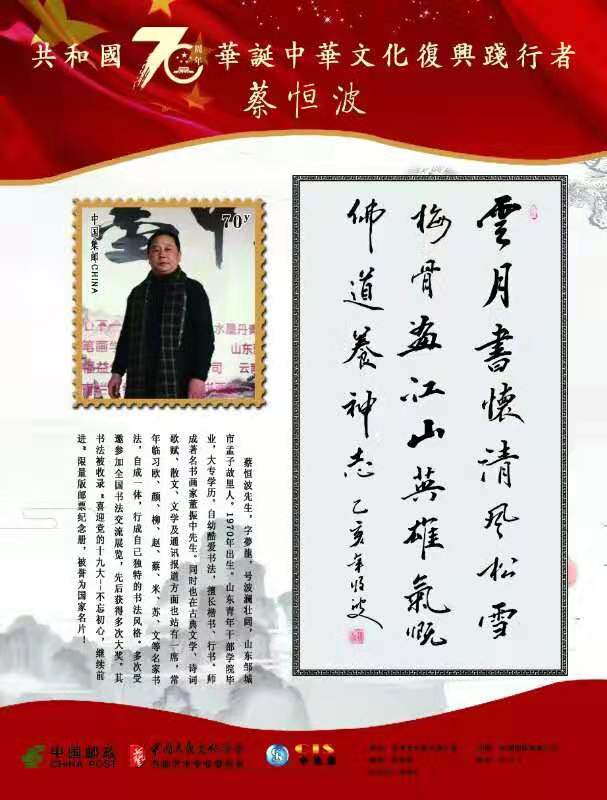 共和國70周年華誕中華文化復興踐行者
蔡恒波
中国集邮CHINA
70y
水墨丹青
笔画
山东
司
云
雲月書懷清风松雪
梅骨画江山英雄氣慨
佛道養神志
乙亥年恒波
蔡恒波先生，字夢旎，号波澜壮阔，山东邹城
市孟子故里人，1970年出生。山东青年干部学院毕
业，大专学历，自幼酷爱书法，擅长楷书、行书，师
成著名书画家董振中先生。同时也在古典文学、诗词
歌赋、散文、文学及通讯报道方面也站有一席，常
年临习欧、颜、柳、赵、蔡、米、苏、文等名家书
法，自成一体，行成自己独特的书法风格。多次受
邀参加全国书法交流展览，先后获得多次大奖，其
书法被收录“喜迎党的十九大--不忘初心，继续前
进”限量版邮票纪念册，被誉为国家名片！
中国邮政
CHINA POST
CIS